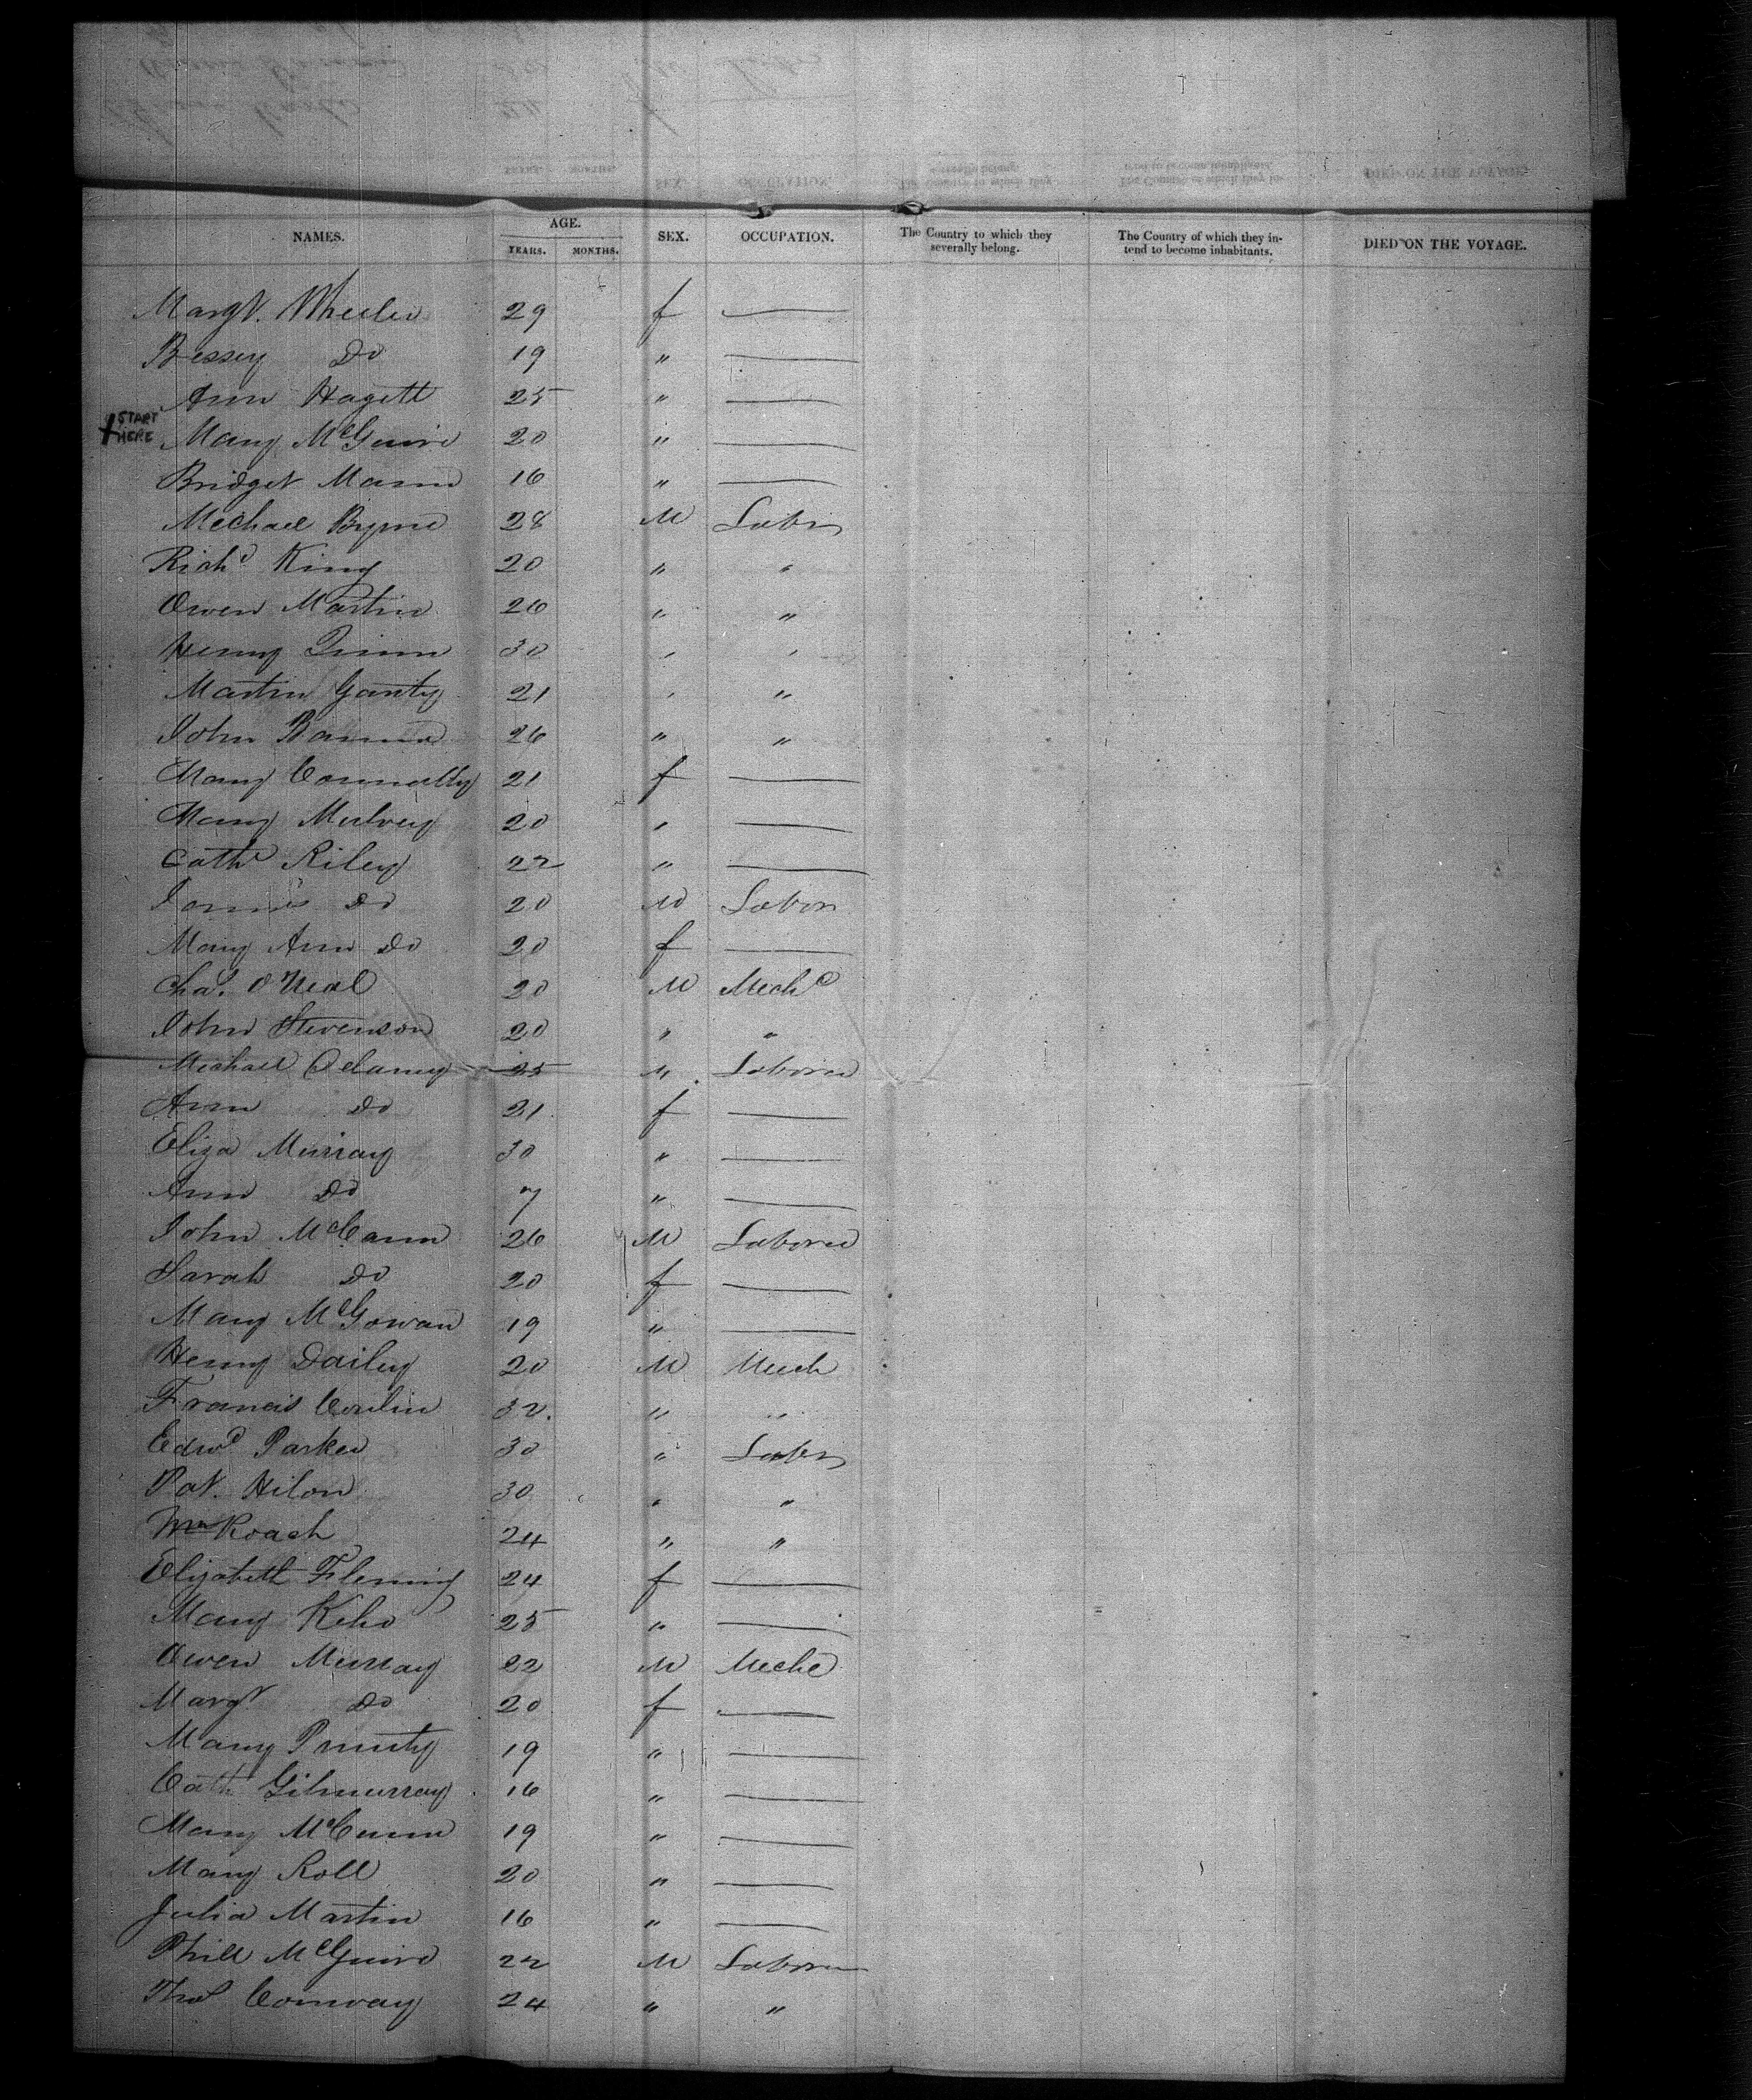 NAMES. AGE. YEARS. MONTHS. SEX. OCCUPATION. The Country to which they severally belong. The Country of which they intend to become inhabitants. DIED ON THE VOYAGE.
Margt. Wheeler 29 f —
Bessey Do 19 " —
Ann Hagett 25 " —
START HERE Mary McGuire 20 " —
Bridget Mann 16 " —
Michael Byrne 28 M Labr
Richd King 20 " "
Owen Martin 26 " "
Henry Quinn 30 " "
Martin Ganty 21 " "
John 26 " "
Mary Connolly 21 f —
Mary Mulvey 20 " —
Cathe Riley 22 " —
James Do 20 M Labor
Mary Ann Do 20 f —
Chas. O'Neal 20 M Mechc
John Stevenson 20 " "
Michael Delaney 25 " Laborer
Ann Do 21 f —
Eliza Murray 30 " —
Ann Do 7 " —
John McCann 26 M Laborer
Sarah Do 20 f —
Mary McGowan 19 " —
Henry Dailey 20 M Mech
Francis Conlin 32. " "
Edwd Parker 30 " Labr
Pat. Hilon 30 " "
Wm Roach 24 " "
Elizabeth Fleming 24 f —
Mary Keho 25 " —
Owen Murray 22 M Mechc
Margt Do 20 f —
Mary Prunty 19 " —
Cath Gilmurray 16 " —
Mary McCunn 19 " —
Mary Roll 20 " —
Julia Martin 16 " —
Phill McGuire 22 M Laborer
Thos Conway 24 " "